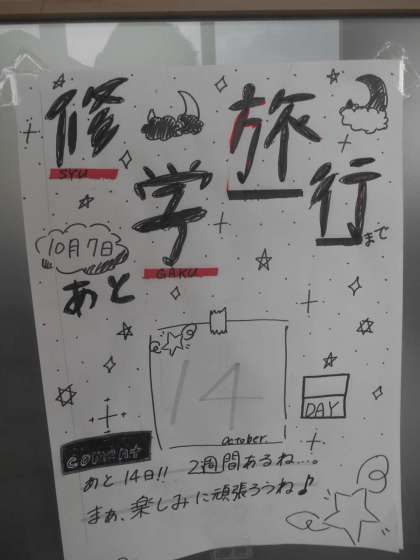 修学旅行まで
SYU
GAKU
10月7日
あと
14
October
DAY
coment
あと14日!! 2週間あるね…。
まぁ、楽しみに頑張ろうね♪